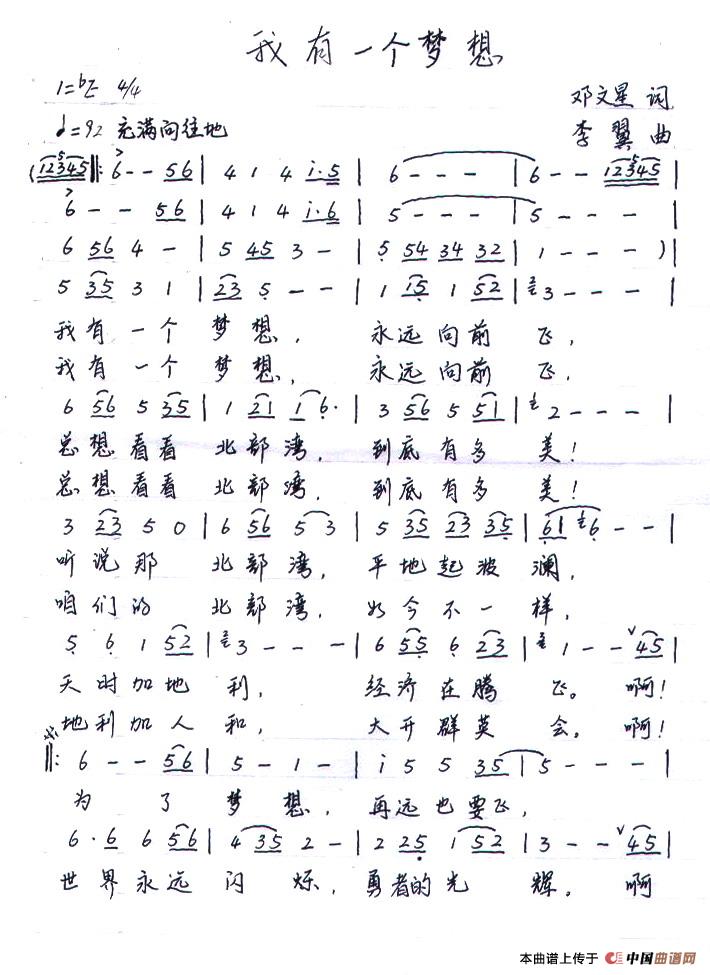 我有一个梦想
1=bE 4/4
邓文星 词
♩=92 充满向往地
李翼 曲
(12345 ‖: 6 - - 56 | 4 1 4 i·5 | 6 - - - | 6 - - 12345 |
6 - - 56 | 4 1 4 i·6 | 5 - - - | 5 - - - |
6 56 4 - | 5 45 3 - | 5 54 34 32 | 1 - - - ) |
5 35 3 1 | 23 5 - - | 1 i5 1 52 | 3 - - - |
我有一个梦想, 永远向前飞,
我有一个梦想, 永远向前飞,
6 56 5 35 | 1 21 1 6· | 3 56 5 51 | 2 - - - |
总想看看北部湾, 到底有多美!
总想看看北部湾, 到底有多美!
3 23 5 0 | 6 56 5 3 | 5 35 23 35 | 61 6 - - |
听说那北部湾, 平地起波澜,
咱们的北部湾, 如今不一样,
5 6 1 52 | 3 - - - | 6 55 6 23 | 1 - - 45 |
天时加地利, 经济在腾飞。啊!
地利加人和, 大开群英会。啊!
‖: 6 - - 56 | 5 - 1 - | i 5 5 35 | 5 - - - |
为了梦想, 再远也要飞,
6 · 6 6 56 | 4 35 2 - | 2 25 1 52 | 3 - - 45 |
世界永远闪烁, 勇者的光辉。啊
本曲谱上传于 中国曲谱网